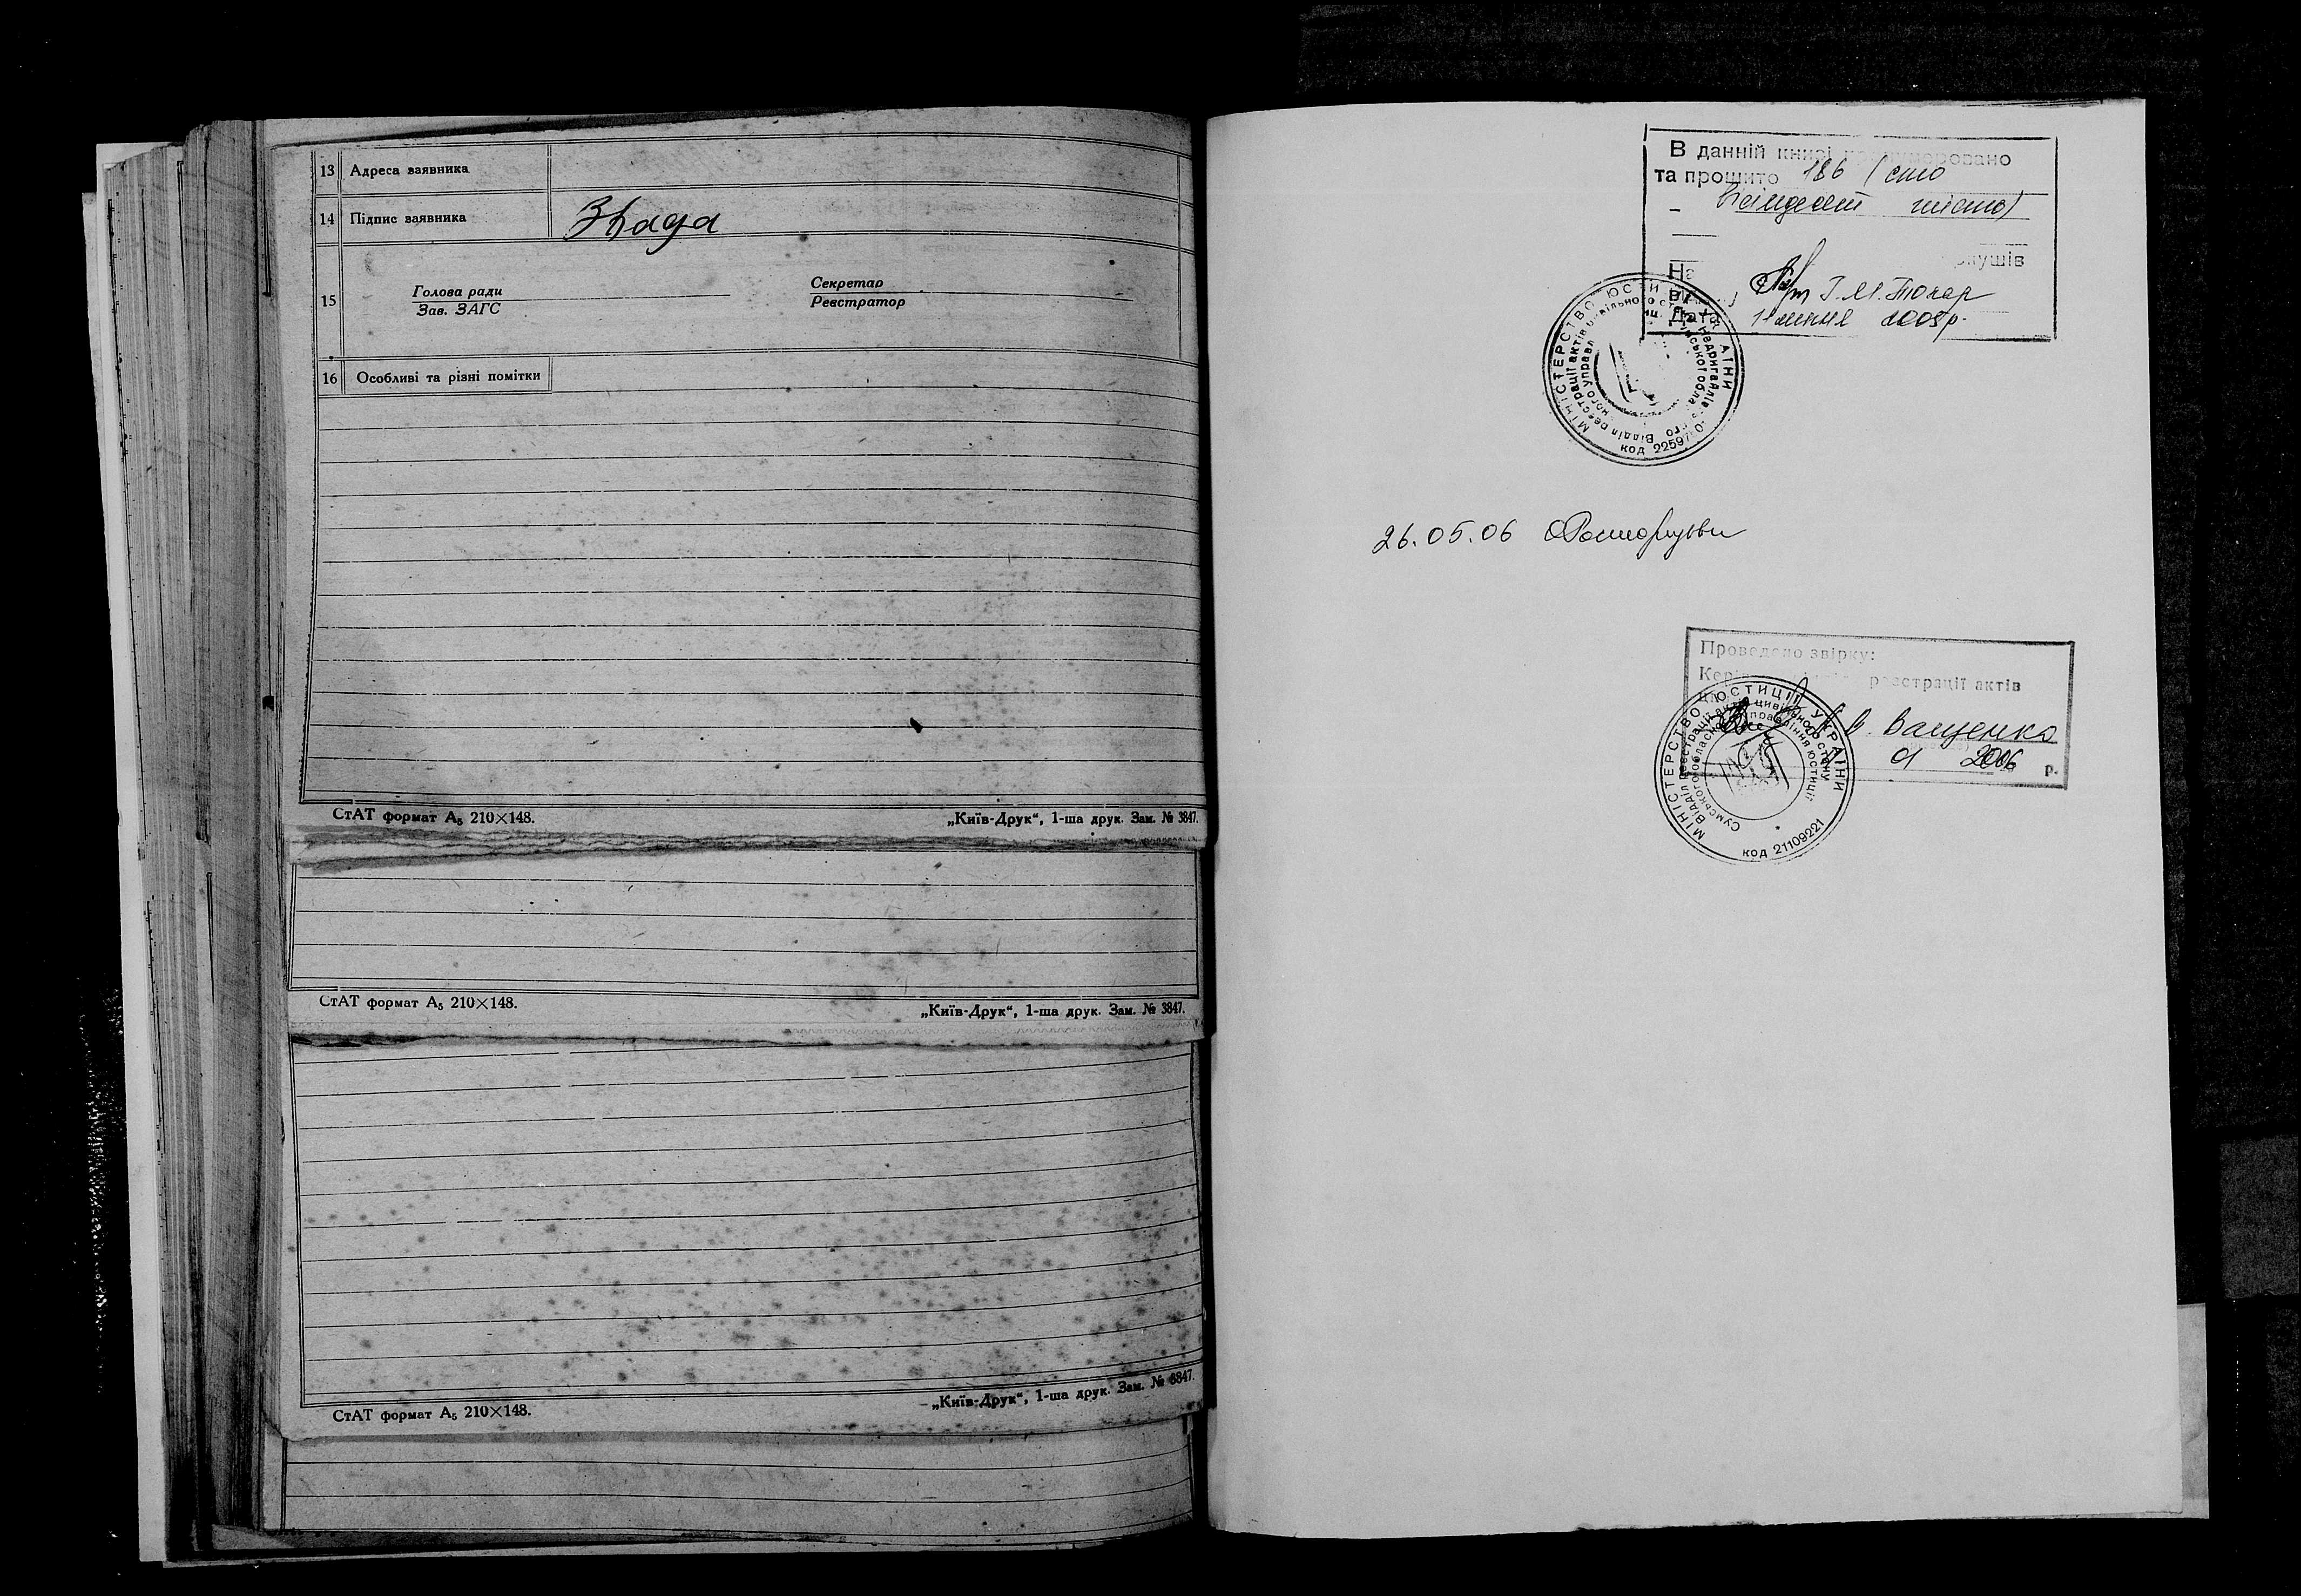 13 Адреса заявника
14 Підпис заявника
15 Голова ради
Зав. ЗАГС
Секретар
Реєстратор
16 Особливі та різні помітки
СтАТ формат А₅ 210×148. „Київ-Друк“, 1-ша друк. Зам. № 3847.
СтАТ формат А₅ 210×148. „Київ-Друк“, 1-ша друк. Зам. № 3847.
СтАТ формат А₅ 210×148. „Київ-Друк“, 1-ша друк. Зам. № 3847.
В данній книзі
та прошито 186 (сто
шість)
На
І.М. Токар
Дата 2005 р.
МІНІСТЕРСТВО ЮСТИЦІЇ УКРАЇНИ
код
26.05.06
Проведено звірку:
реєстрації актів
В. Ващенко
2006 р.
МІНІСТЕРСТВО ЮСТИЦІЇ УКРАЇНИ
Відділ реєстрації актів цивільного стану
Сумського обласного управління юстиції
код 21109221